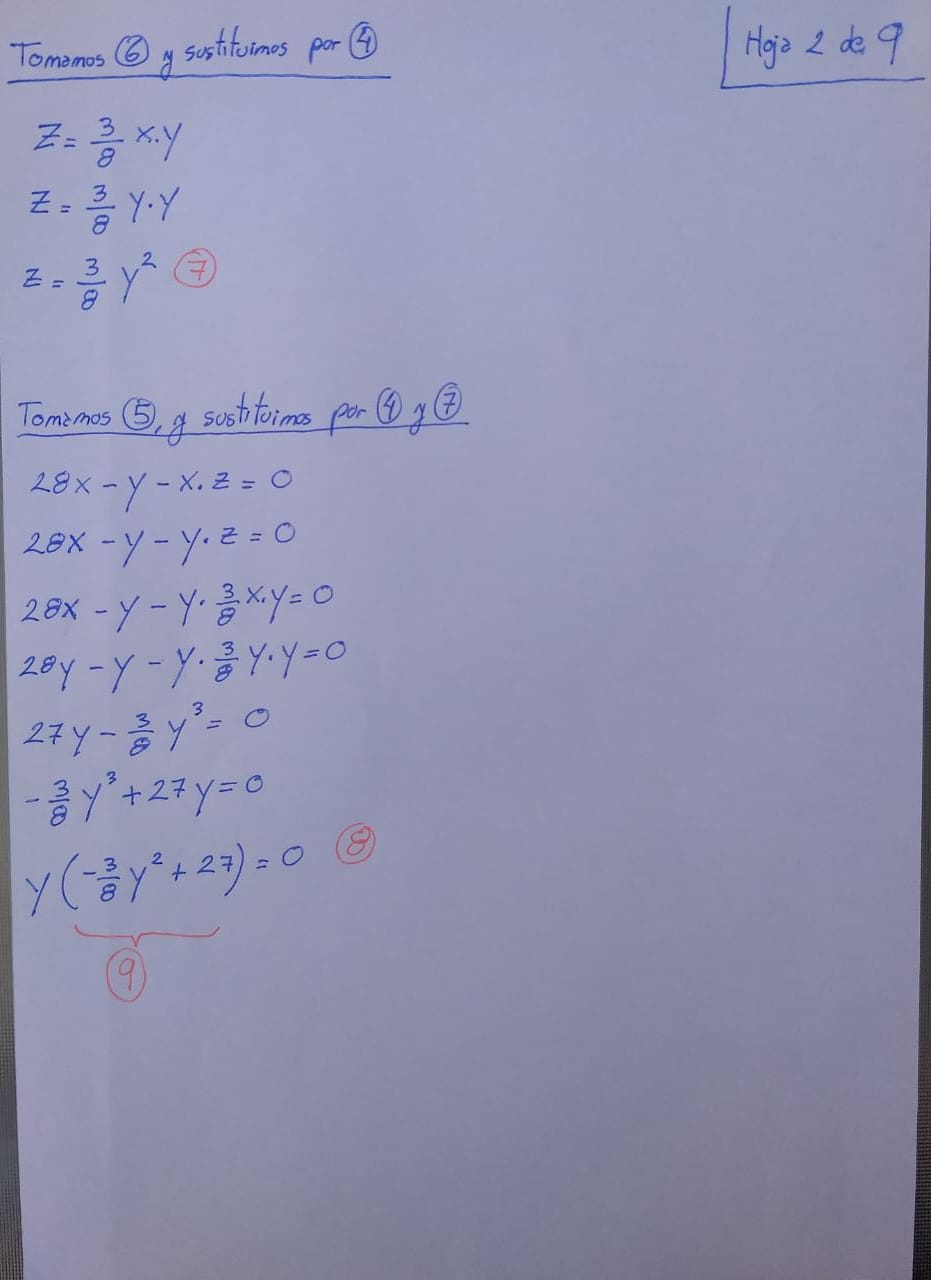 Hoja 2 de 9
Tomamos ⑥ y sustituimos por ④
Z = 3/8 x.y
Z = 3/8 y.y
Z = 3/8 y² ⑦
Tomamos ⑤, y sustituimos por ④ y ⑦
28x - y - x.z = 0
28x - y - y.z = 0
28x - y - y. 3/8 x.y = 0
28y - y - y. 3/8 y.y = 0
27y - 3/8 y³ = 0
-3/8 y³ + 27y = 0
y(-3/8 y² + 27) = 0 ⑧
⑨